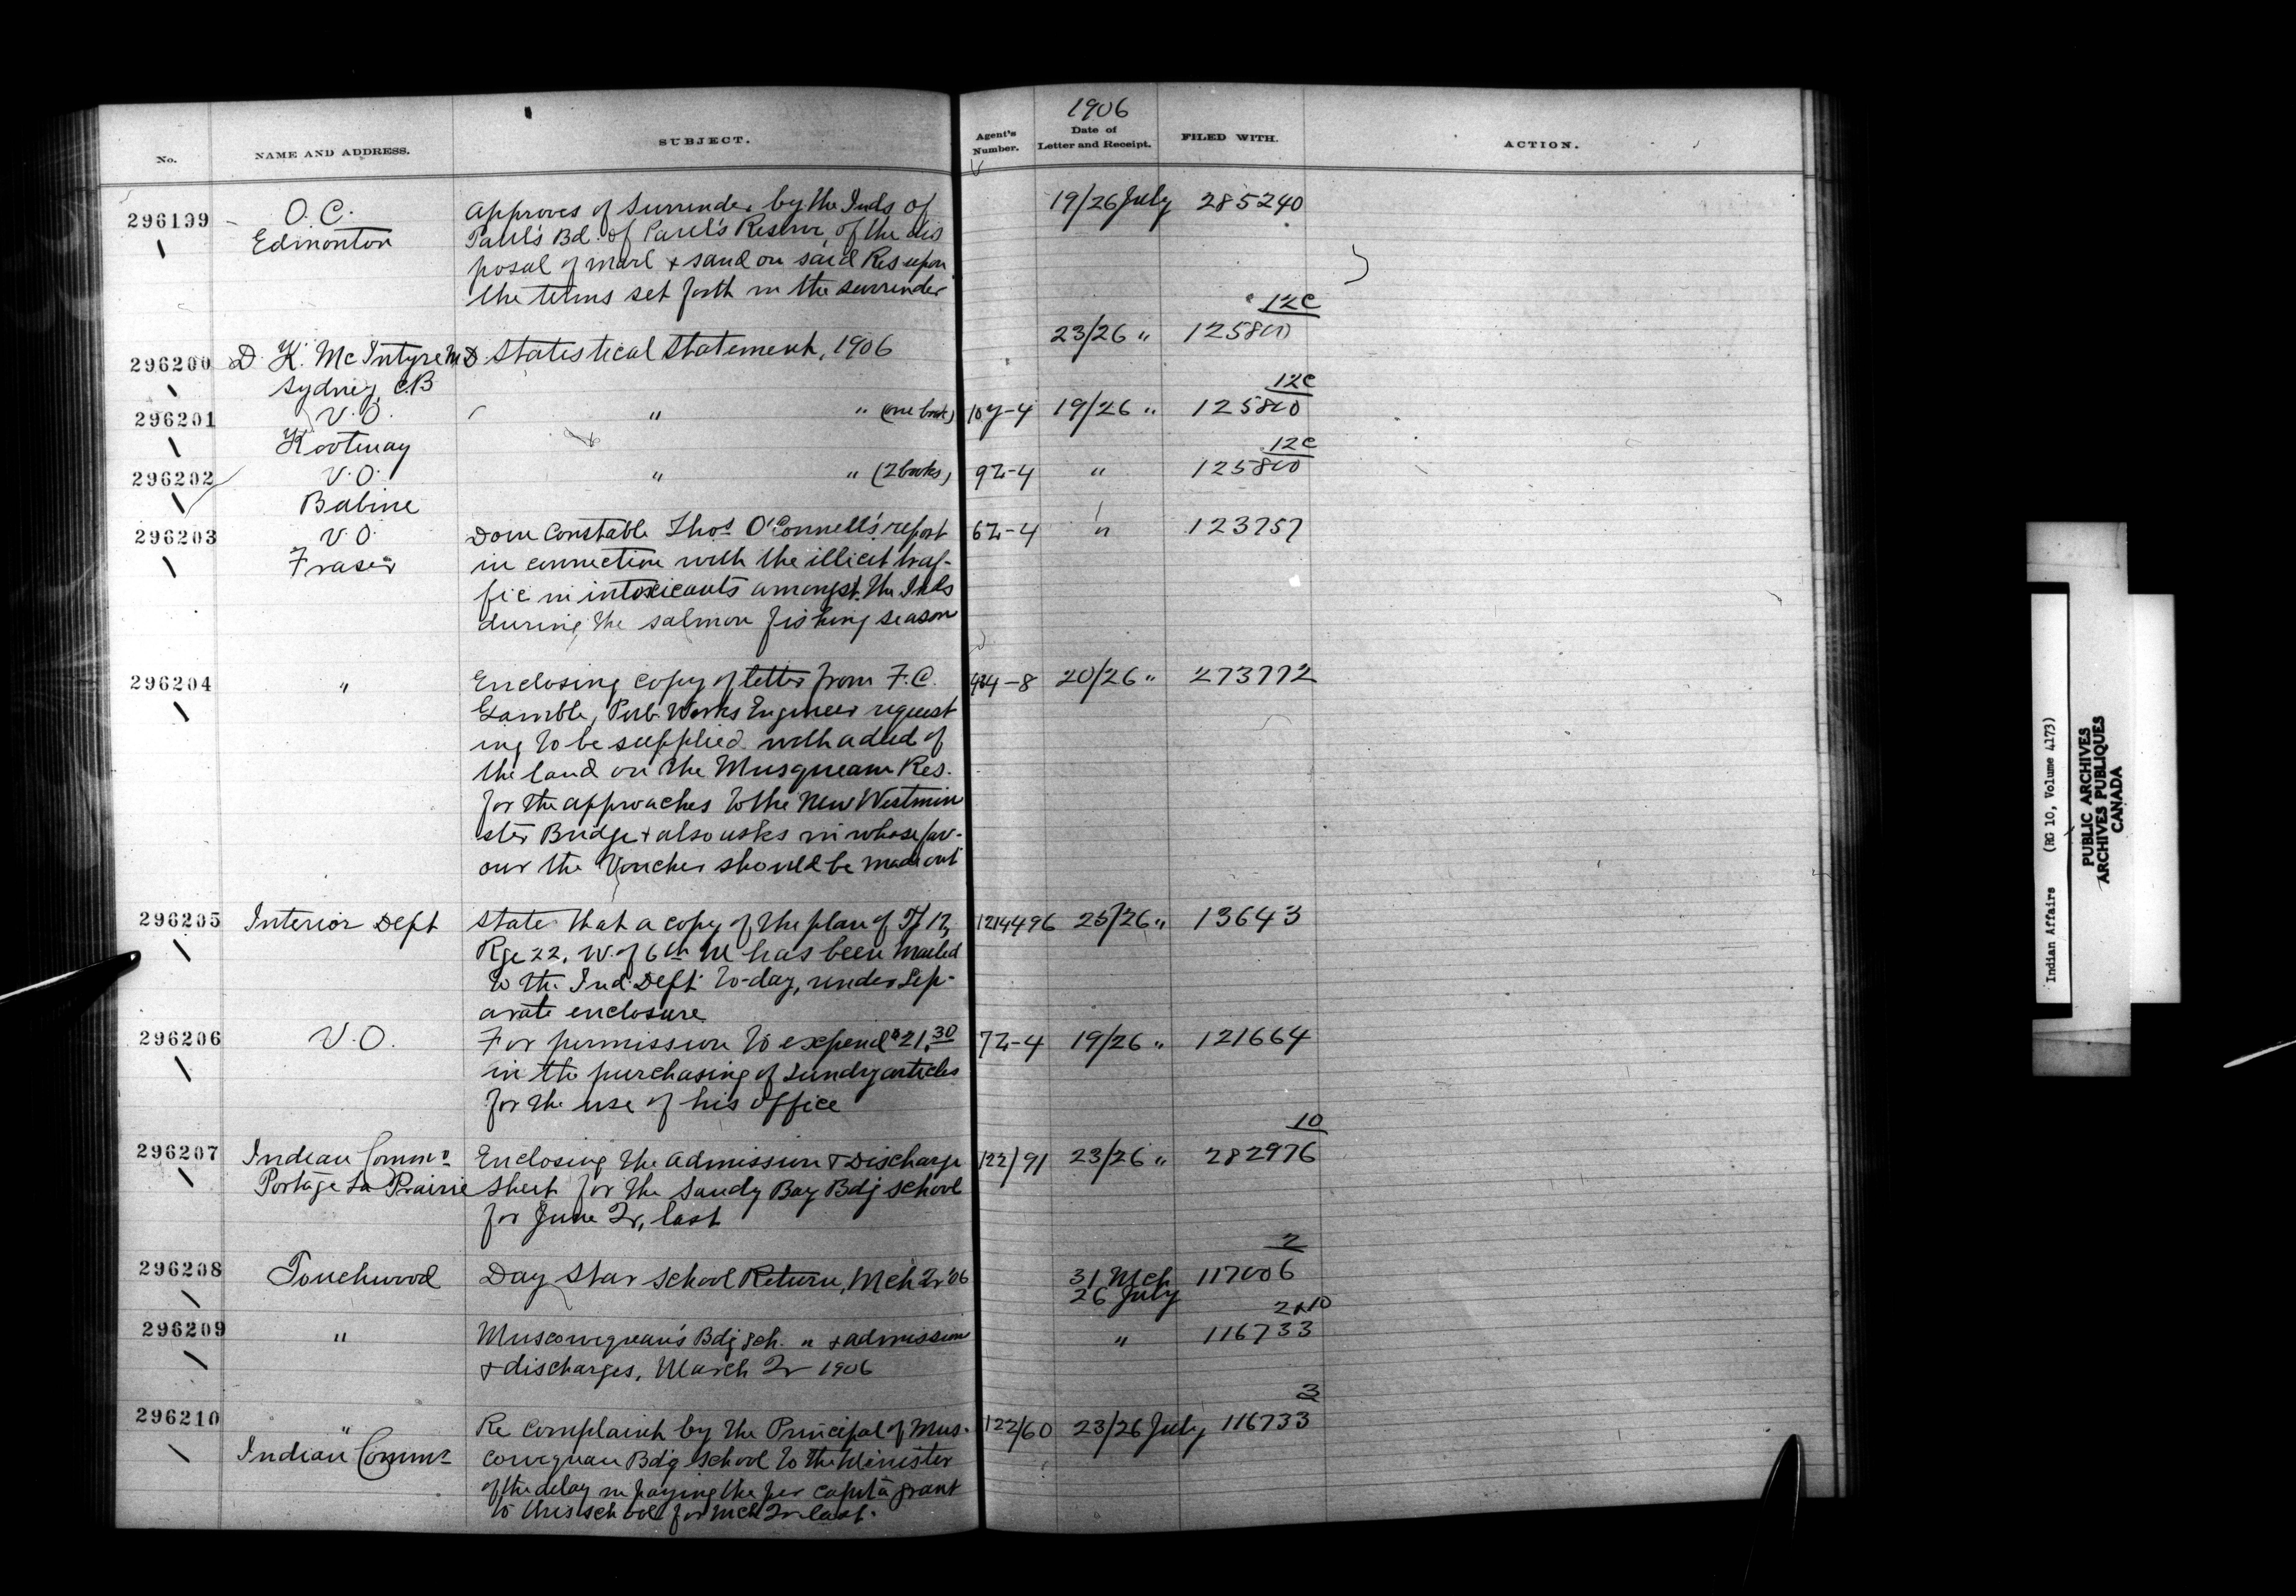 1906
No. NAME AND ADDRESS. SUBJECT. Agent's Number. Date of Letter and Receipt. FILED WITH. ACTION.
296199 O.C. Approves of Surrender by the Inds of 19/26 July 285240
Edmonton Paul's Bd. of Paul's Reserve, of the dis
posal of marl & sand on said Res upon
the terms set forth in the surrender
12C
296200 D. K. McIntyre M.D Statistical Statement, 1906 23/26 " 125800
Sydney, C.B
12C
296201 V.O. " " (one book) 107-4 19/26 " 125800
Kootenay
12C
296202 V.O. " " (2 books) 92-4 " 125800
Babine
296203 V.O. Dom Constable Thos O'Connell's report 62-4 " 123757
Fraser in connection with the illicit traf-
fic in intoxicants amongst the Inds
during the salmon fishing season
296204 " Enclosing copy of letter from F.C. 434-8 20/26 " 273772
Gamble, Pub. Works Engineer request
ing to be supplied with a deed of
the land on the Musqueam Res.
for the approaches to the New Westmin
ster Bridge & also asks in whose fav-
our the Voucher should be made out
296205 Interior Dept State that a copy of the plan of Tp 17, 1214496 25/26 " 13643
Rge 22, W. of 6th M has been mailed
to the Ind. Dept. to-day, under Sep-
arate enclosure
296206 V.O. For permission to expend $21.30 72-4 19/26 " 121664
in the purchasing of sundry articles
for the use of his office
10
296207 Indian Commr Enclosing the admission & Discharge 122/91 23/26 " 282976
Portage La Prairie Sheet for the Sandy Bay Bdg school
for June Qr, last
2
296208 Touchwood Day Star School Return, Mch Qr '06 31 Mch 117006
26 July
2&10
296209 " Muscowequan's Bdg sch. " & admissions " 116733
& discharges, March Qr 1906
3
296210 " Re complaint by the Principal of Mus- 122/60 23/26 July 116733
Indian Commr cowequan Bdg School to the Minister
of the delay in paying the per capita grant
to this school for Mch Qr last.
Indian Affairs (RG 10, Volume 4173)
PUBLIC ARCHIVES
ARCHIVES PUBLIQUES
CANADA